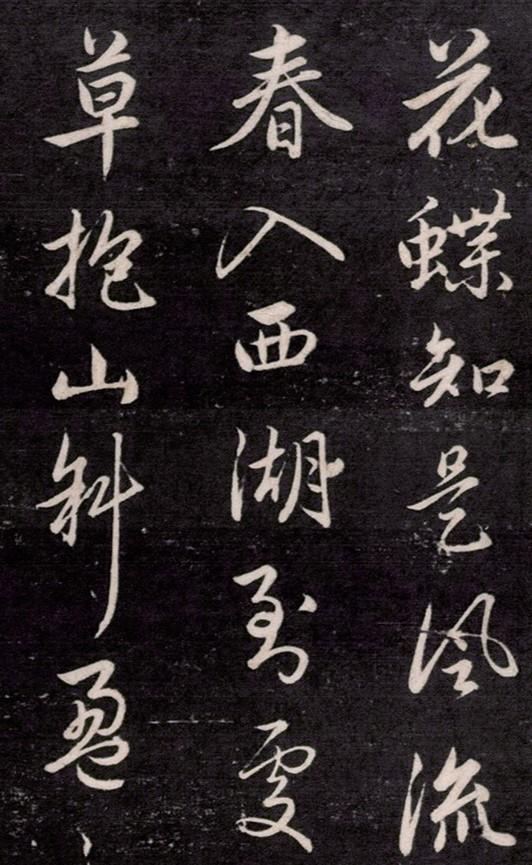 花蝶知是風流
春入西湖到處
草抱山斜盈〻